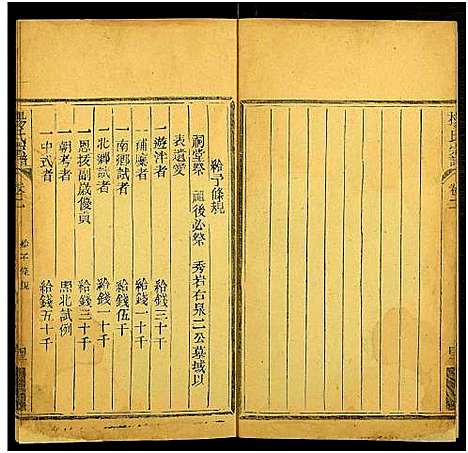 楊氏宗譜 卷二
給予條規
祠堂祭 祖後必祭 秀岩右泉二公墓域以
表遺愛
一遊泮者 給錢三十千
一補廩者 給錢一十千
一南鄉試者 給錢伍千
一北鄉試者 給錢一十千
一恩拔副歲優貢 給錢三十千
一朝考者 照北試例
一中式者 給錢五十千
卷二 給予條規 四